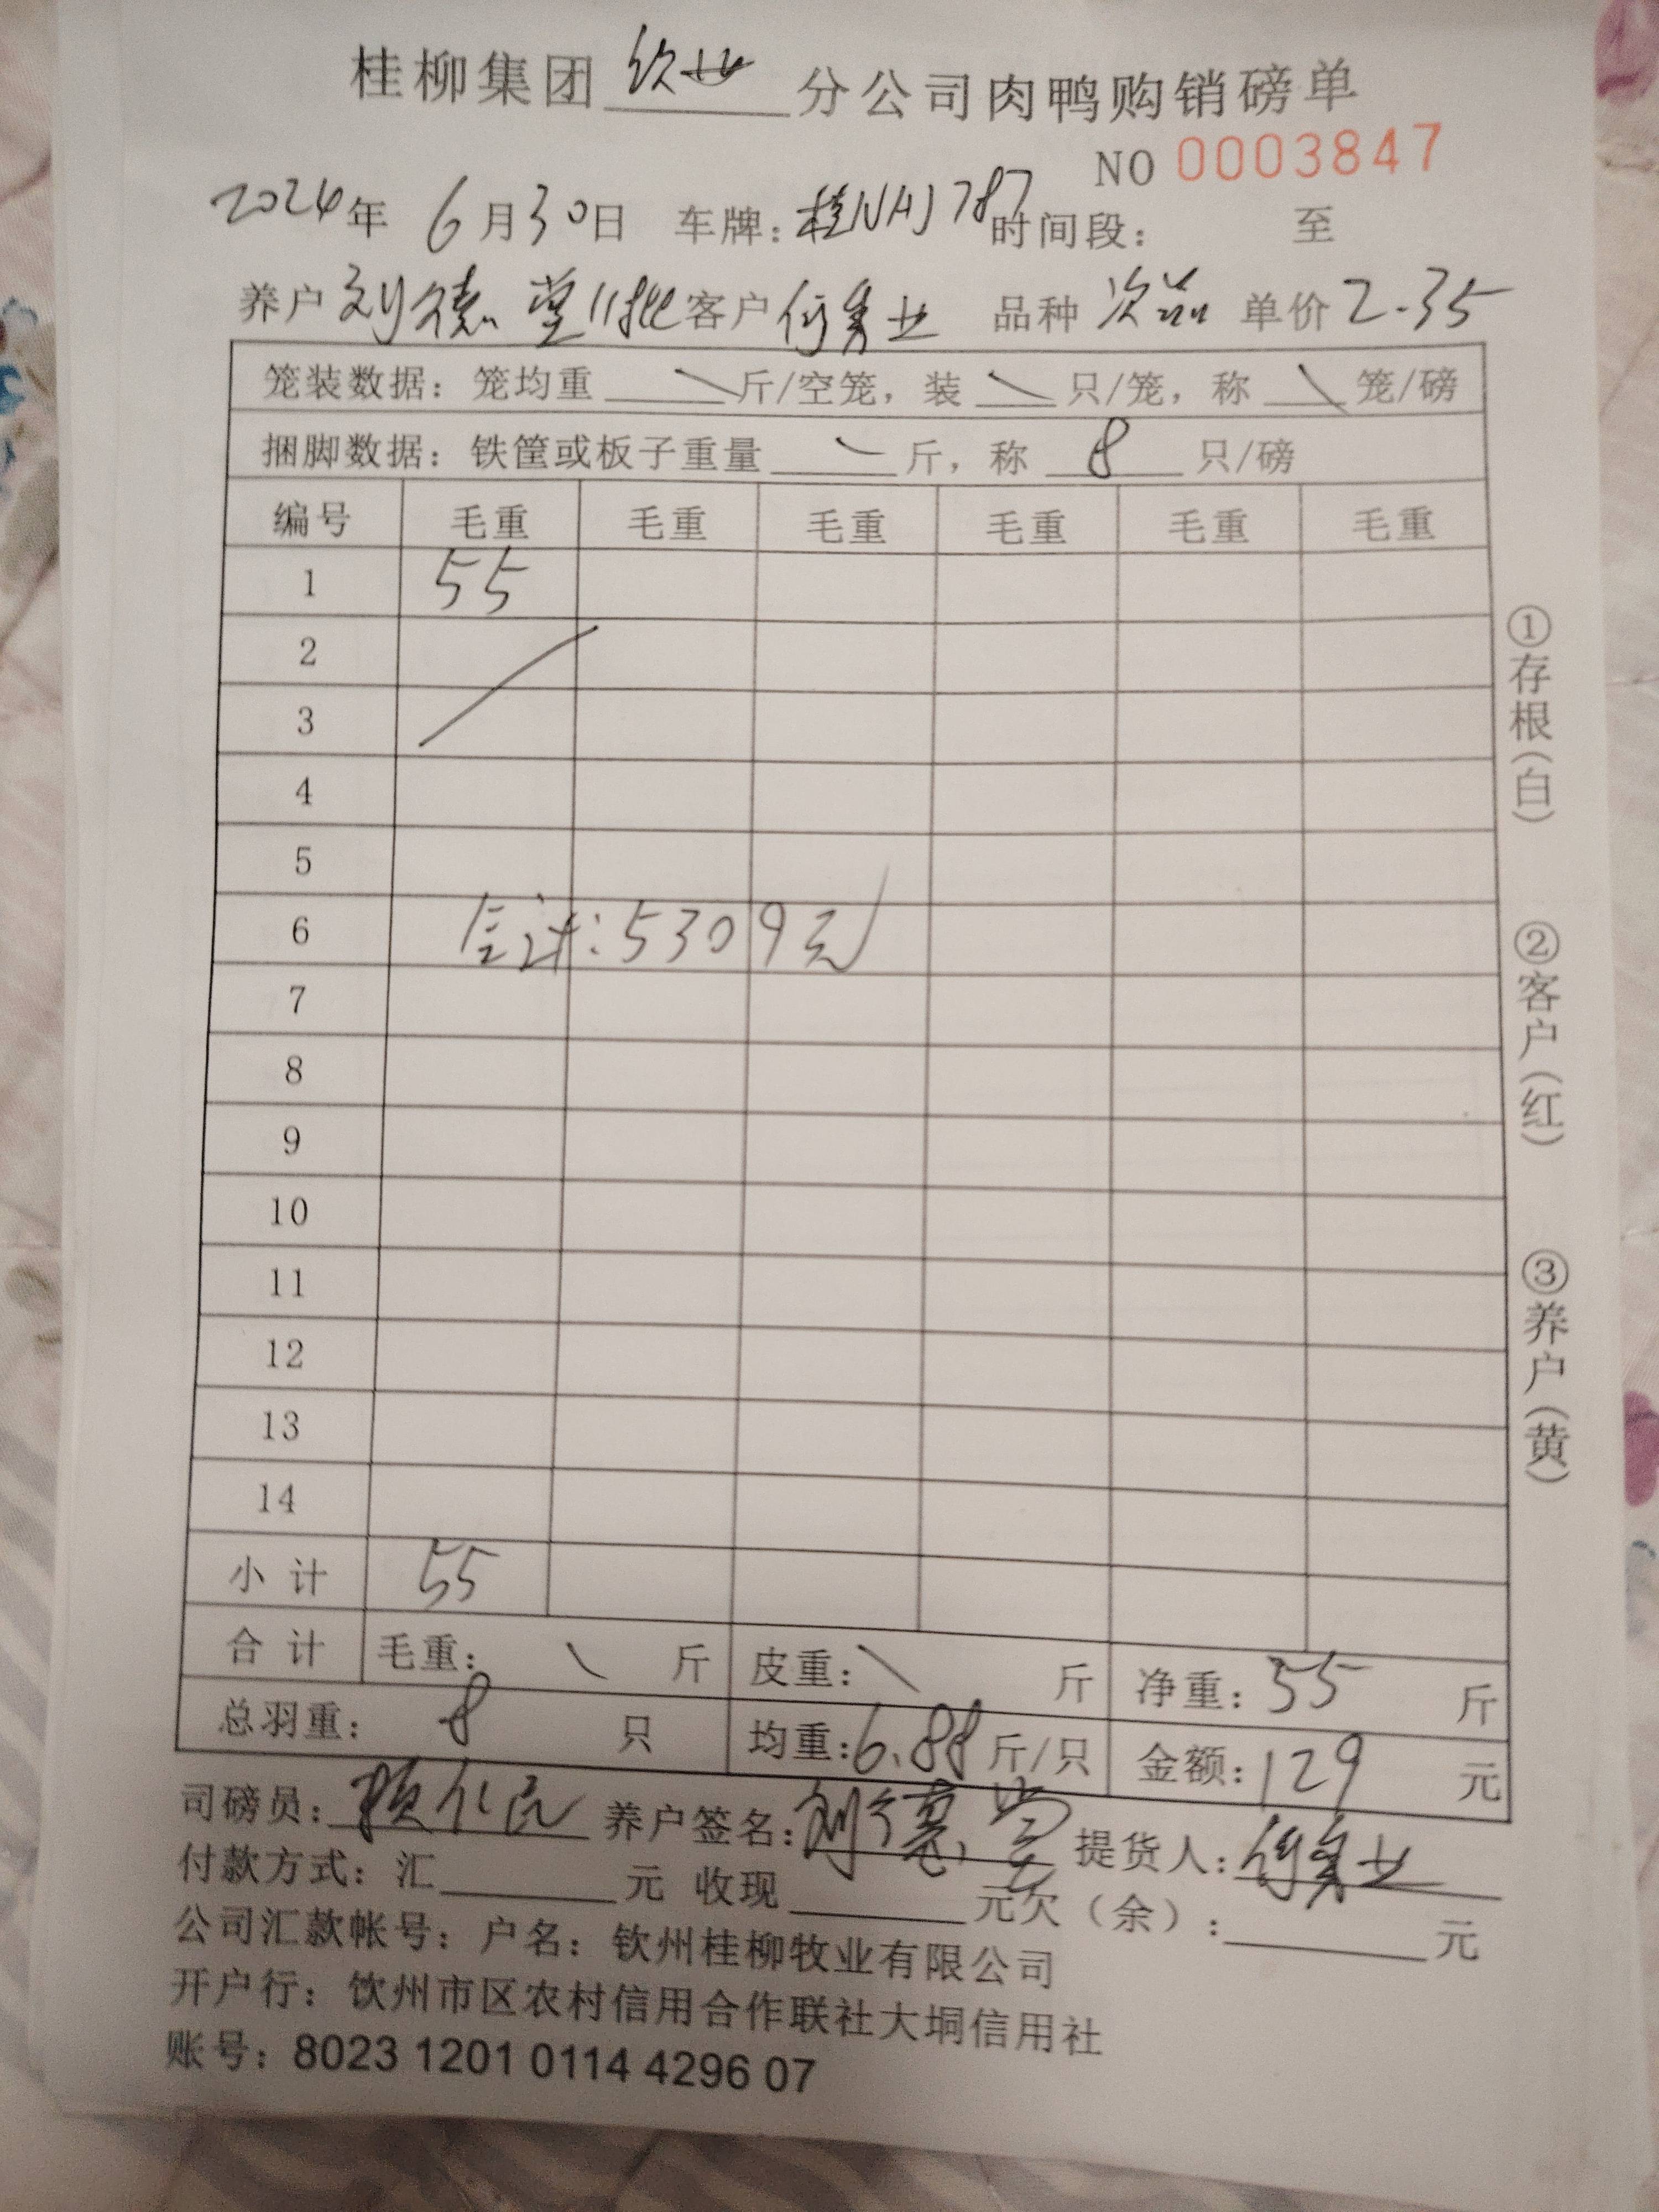 桂柳集团 钦州 分公司肉鸭购销磅单
NO 0003847
2024年 6月30日 车牌：桂NHJ787 时间段： 至
养户 刘德堂11批 客户 何寿业 品种 次品 单价 2.35
笼装数据：笼均重 斤/空笼，装 只/笼，称 笼/磅
捆脚数据：铁筐或板子重量 斤，称 8 只/磅
编号 毛重 毛重 毛重 毛重 毛重 毛重
1 55
2
3
4
5
6 合计：5309元
7
8
9
10
11
12
13
14
小计 55
合计 毛重： 斤 皮重： 斤 净重：55 斤
总羽重： 8 只 均重：6.88 斤/只 金额：129 元
司磅员： 养户签名：刘德堂 提货人：何寿业
付款方式：汇 元 收现 元 欠（余）： 元
公司汇款帐号：户名：钦州桂柳牧业有限公司
开户行：饮州市区农村信用合作联社大垌信用社
账号：8023 1201 0114 4296 07
①存根（白）
②客户（红）
③养户（黄）